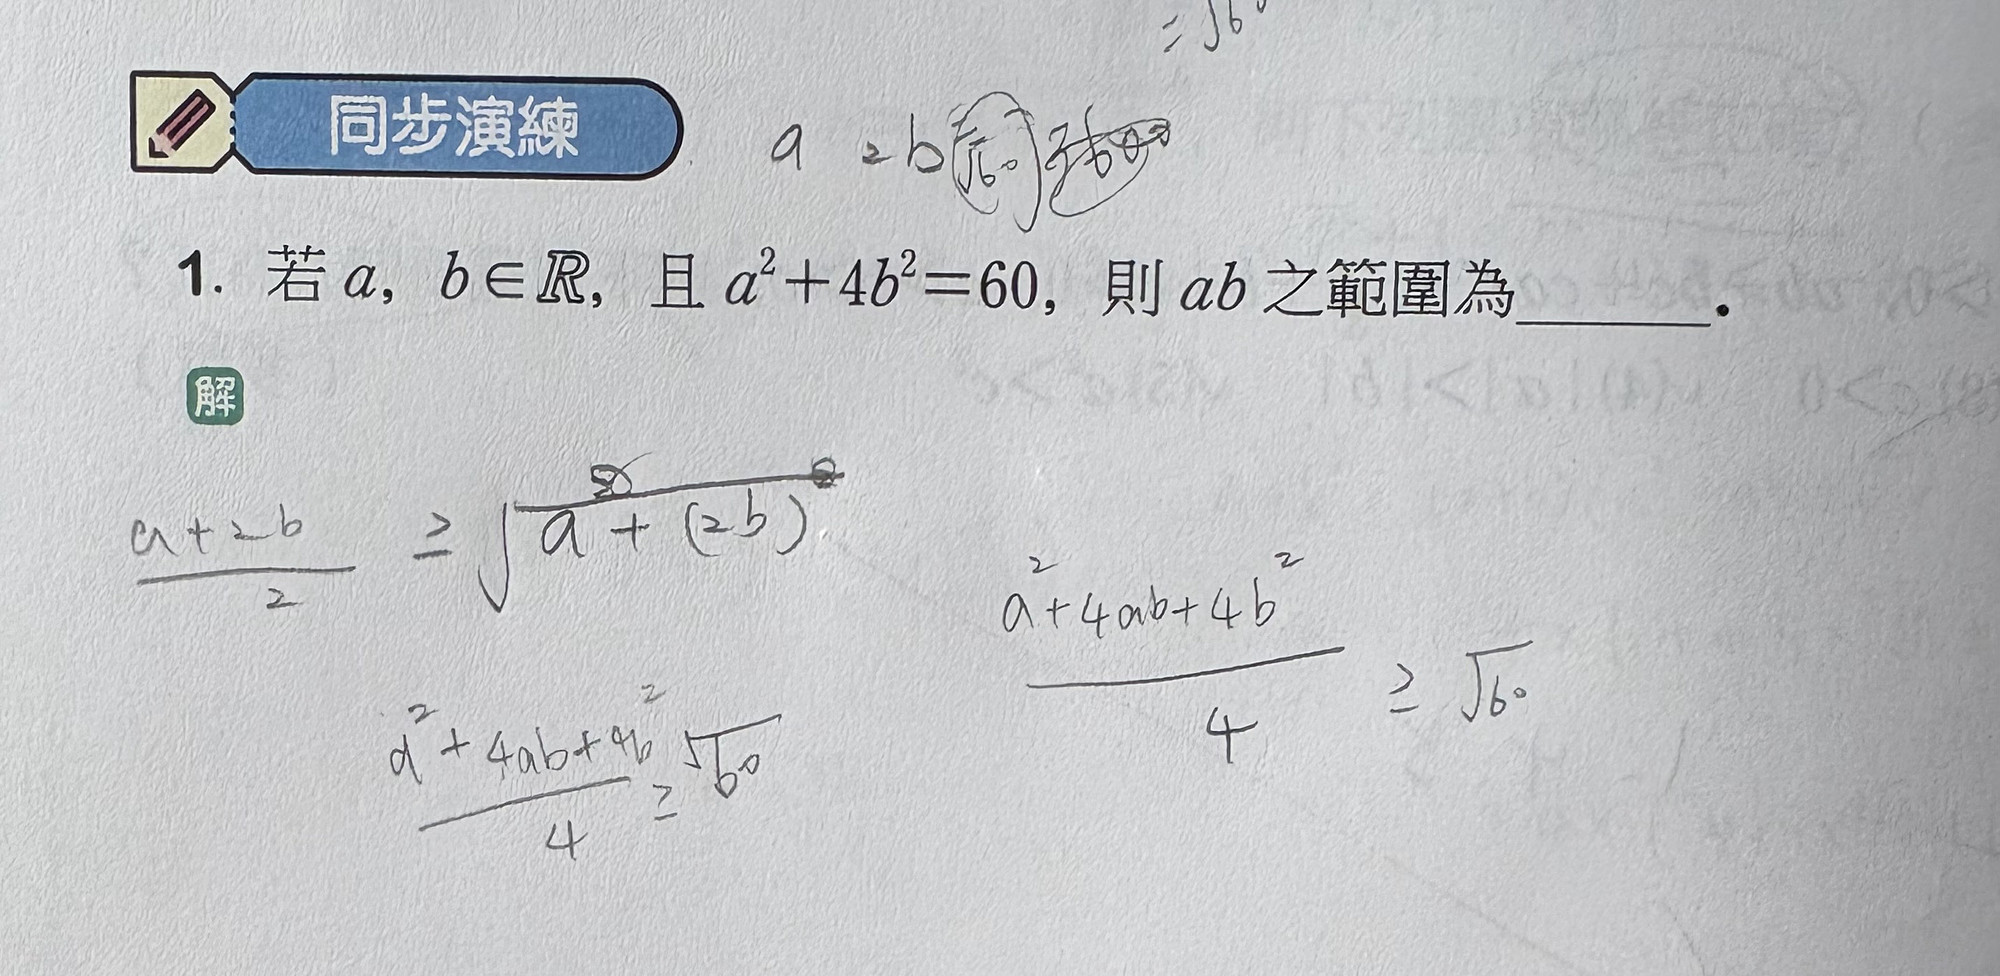 = √60
同步演練
a 2b √60
1. 若 a, b∈ℝ, 且 a²+4b²=60, 則 ab 之範圍為______.
解
(a+2b)/2 ≥ √(a + (2b))
(a²+4ab+4b²)/4 ≥ √60
(a²+4ab+4b²)/4 ≥ √60